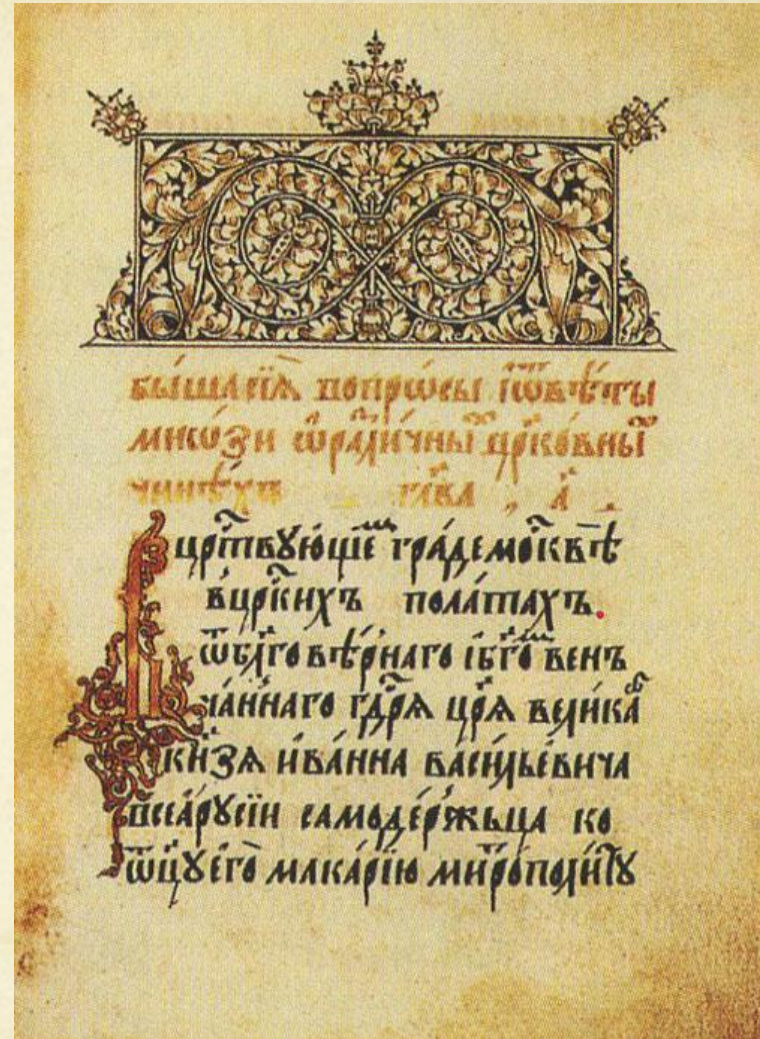 бы́ша сїѧ̀ вопрѡ́сы і ѿвѣ́ты
мно́ѕи ѡ ра҃ли́чны црⷪ҇ко́вны
чинѣ́хъ гла́ва а҃
црⷭ҇твꙋ́ющеⷨ гра́де моⷭ҇квѣ̀
в црⷭ҇кихъ пола́тахъ.
ѿ блгⷪ҇вѣ́рнаго і бгⷪ҇о венъ
ча́ннаго гдⷭ҇рѧ црѧ҃ вели́каⷢ҇ѡ
кн҃ѕѧ ива́нна васи́льевича
всеѧ̀ рꙋсїи самоде́ржьца ко
ѿцꙋ̀ его̀ мака́рїю митропо́литꙋ